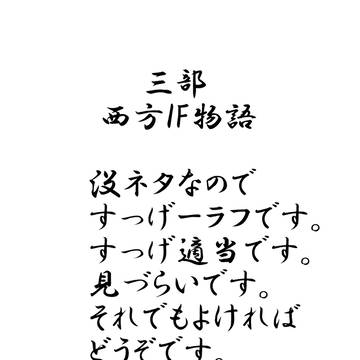 三部
西方IF物語
没ネタなので
すっげーラフです。
すっげ適当です。
見づらいです。
それでもよければ
どうぞです。